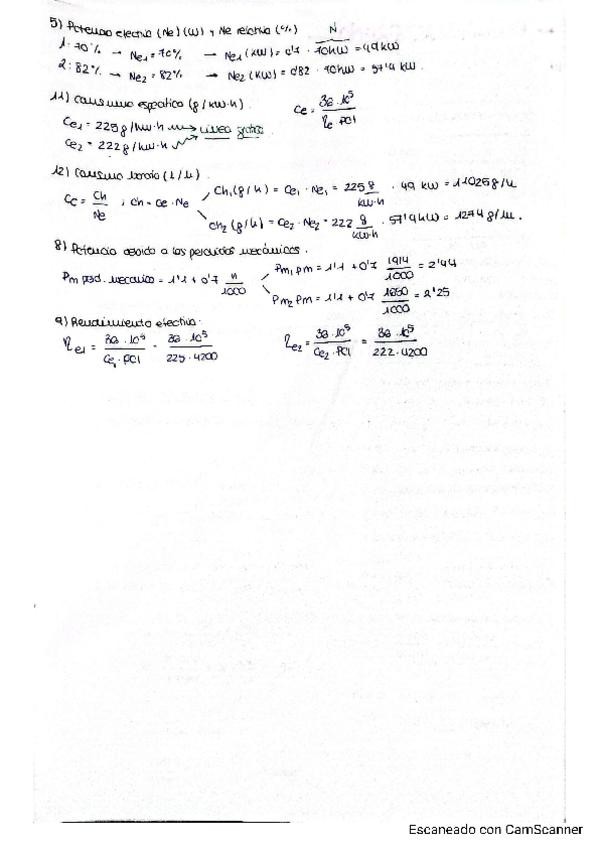 5) Potencia efectiva (Ne) (W) y Ne relativa (%) N
1: 70% → Ne1 = 70% → Ne1 (kW) = 0'7 · 70kW = 49 kW
2: 82% → Ne2 = 82% → Ne2 (kW) = 0'82 · 70kW = 57'4 kW.
11) Consumo específico (g/kW·h). Ce = 36·10⁵ / ηe·PCI
Ce1 = 225g/kW·h → Línea gráfica
Ce2 = 222g/kW·h
12) Consumo horario (l/h).
Ce = Ch/Ne ; Ch = Ce·Ne
Ch1 (g/h) = Ce1 · Ne1 = 225 g/kW·h · 49 kW = 11025 g/h
Ch2 (g/h) = Ce2 · Ne2 = 222 g/kW·h · 57'4 kW = 12744 g/h.
8) Potencia debido a las pérdidas mecánicas.
Pm perd. mecánica = 1'1 + 0'7 n/1000
Pm1 pm = 1'1 + 0'7 1914/1000 = 2'44
Pm2 pm = 1'1 + 0'7 1650/1000 = 2'25
9) Rendimiento efectivo.
ηe1 = 36·10⁵ / Ce1·PCI = 36·10⁵ / 225·4200 ηe2 = 36·10⁵ / Ce2·PCI = 36·10⁵ / 222·4200
Escaneado con CamScanner